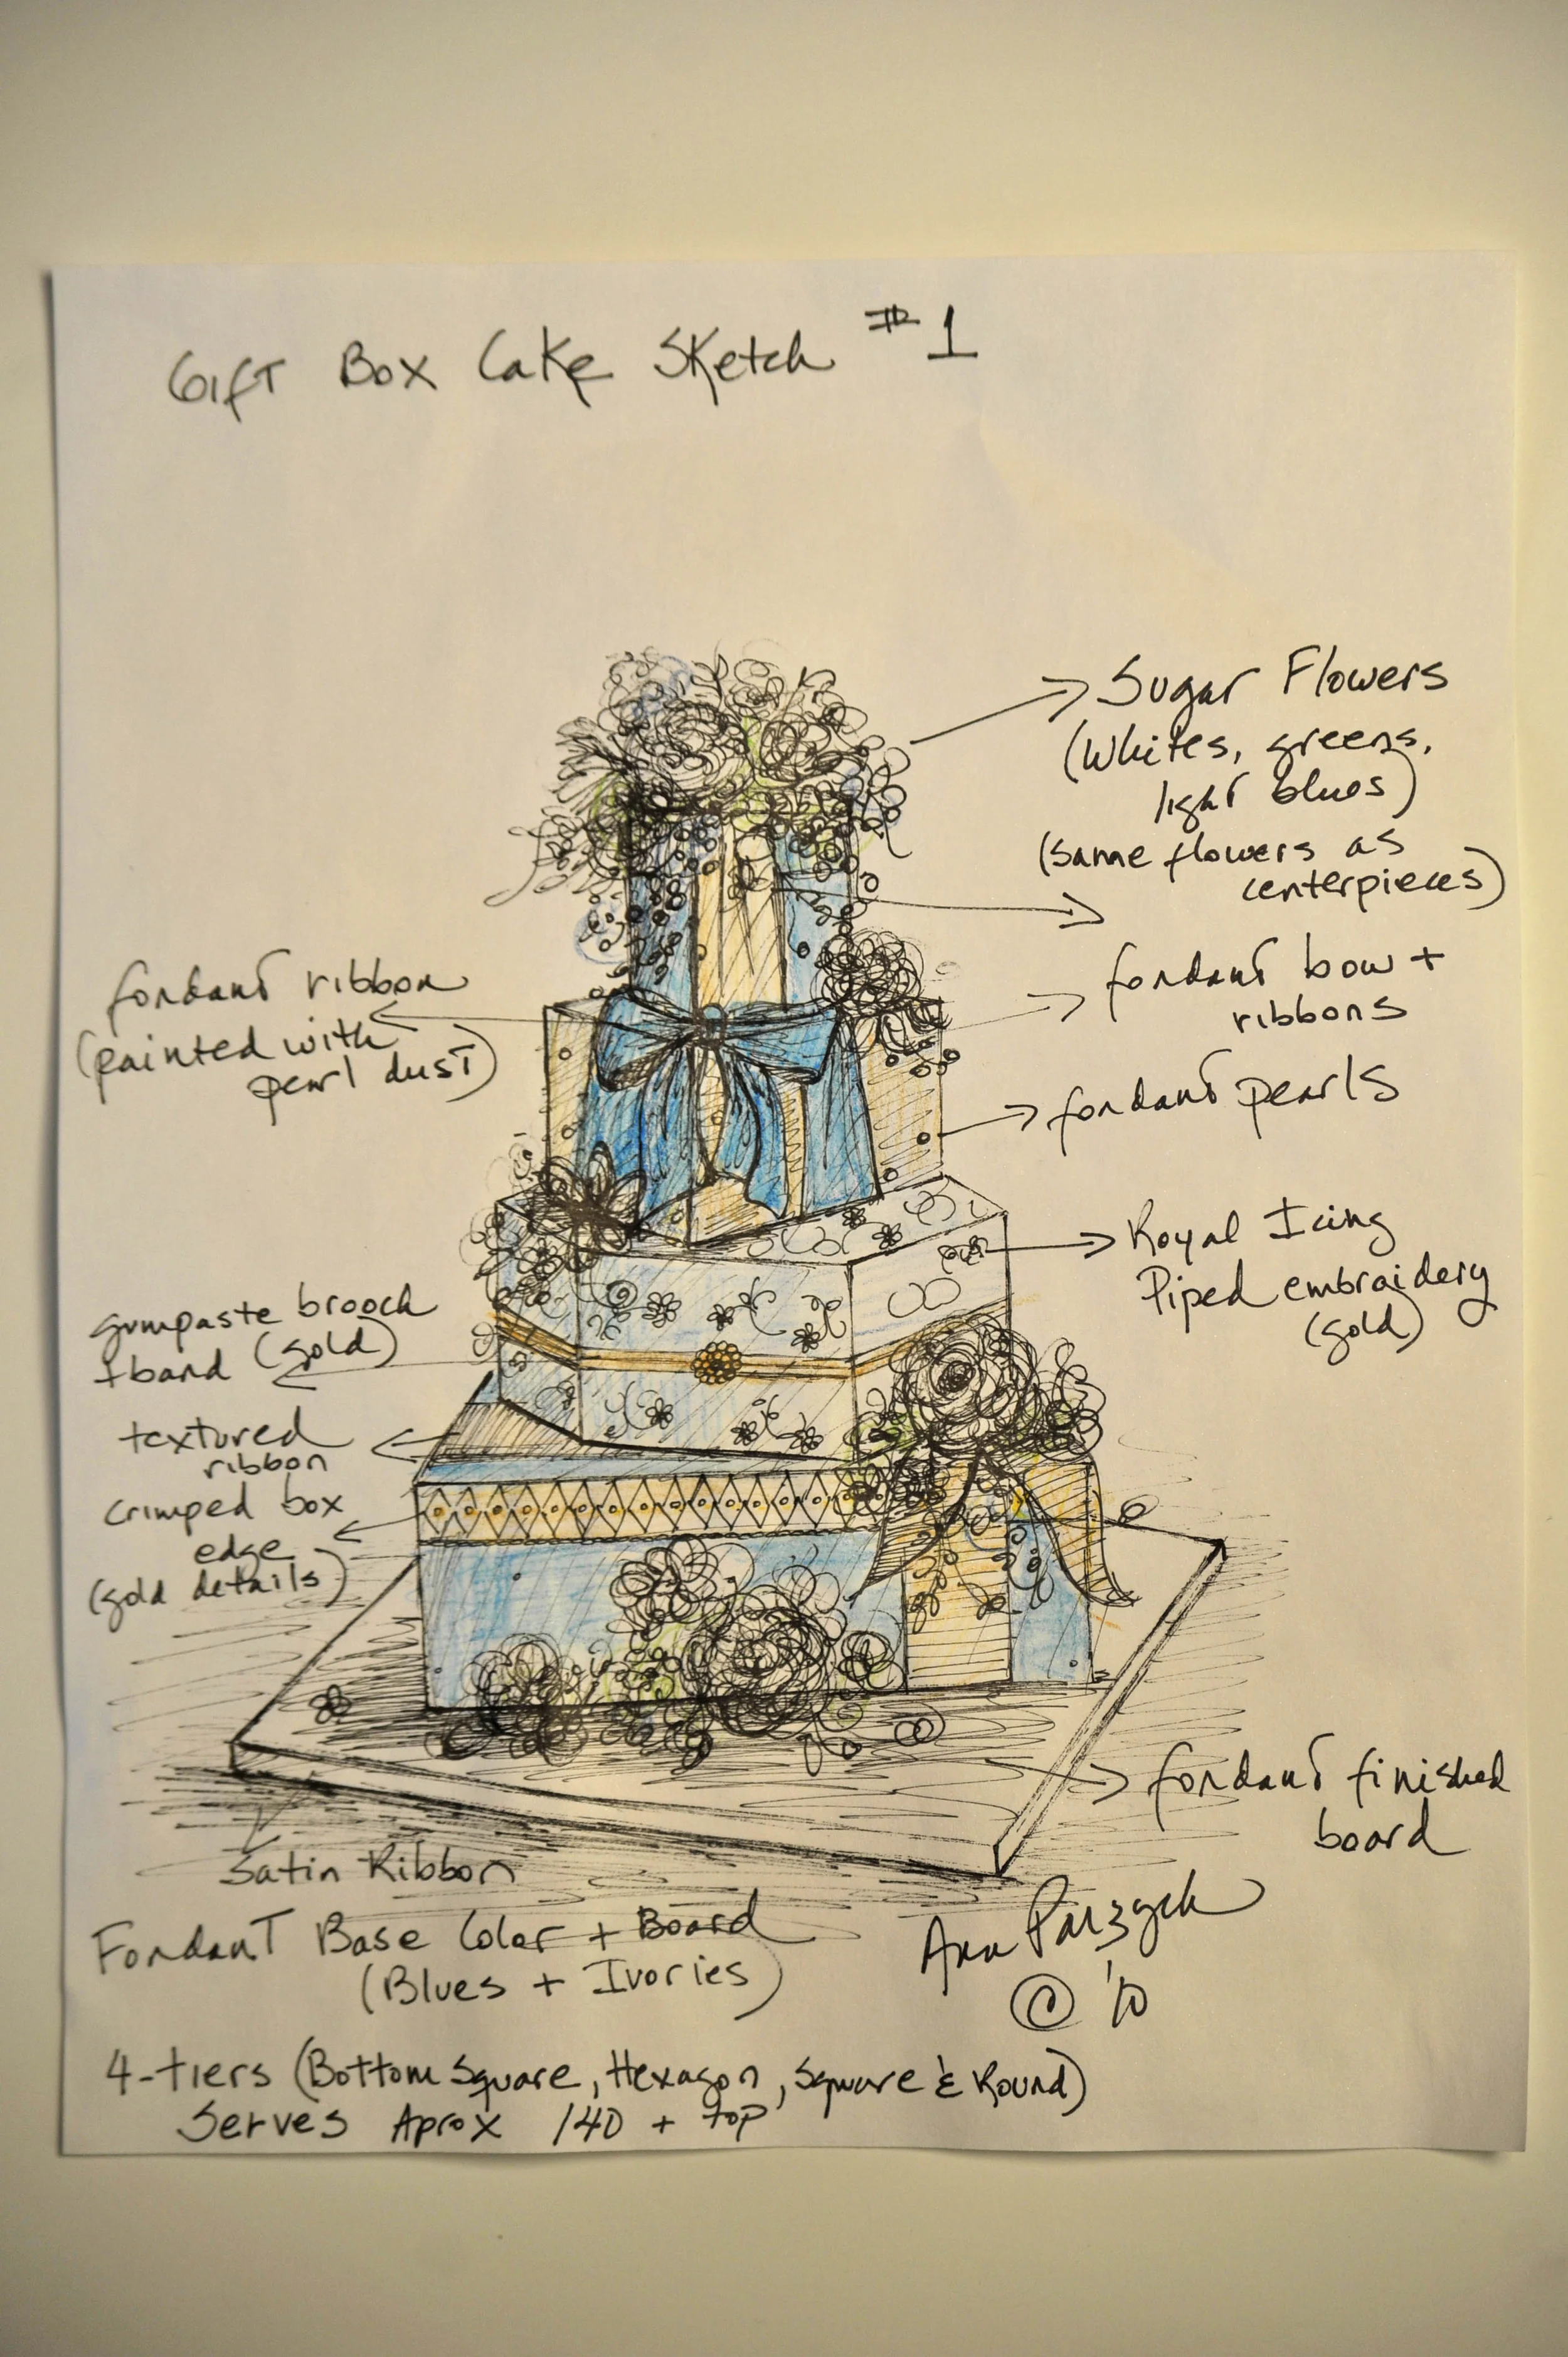 Gift Box Cake Sketch #1
Sugar Flowers
(whites, greens,
light blues)
(same flowers as
centerpieces)
fondant bow +
ribbons
fondant pearls
Royal Icing
Piped embroidery
(gold)
fondant finished
board
fondant ribbon
(painted with
pearl dust)
gumpaste brooch
+ band (gold)
textured
ribbon
crimped box
edge
(gold details)
Satin Ribbon
Fondant Base Color + Board
(Blues + Ivories)
Ann Parzych
© '10
4-tiers (Bottom Square, Hexagon, Square & Round)
Serves Aprox 140 + top